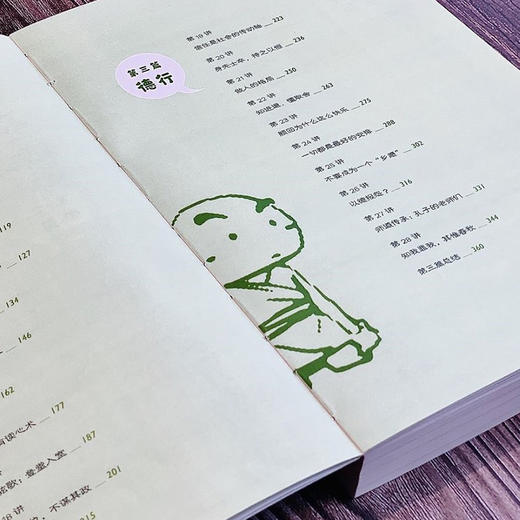 119
127
134
146
162
177
187
201
215
第三篇
德行
第 19 讲
信任是社会的传动轴 223
第 20 讲
身先士卒，持之以恒 236
第 21 讲
做人的格局 250
第 22 讲
知进退，懂取舍 263
第 23 讲
颜回为什么这么快乐 275
第 24 讲
一切都是最好的安排 288
第 25 讲
不要成为一个“乡愿” 302
第 26 讲
以德报怨？ 316
第 27 讲
师道传承：孔子的老师们 331
第 28 讲
知我罪我，其惟春秋 344
第三篇总结 360